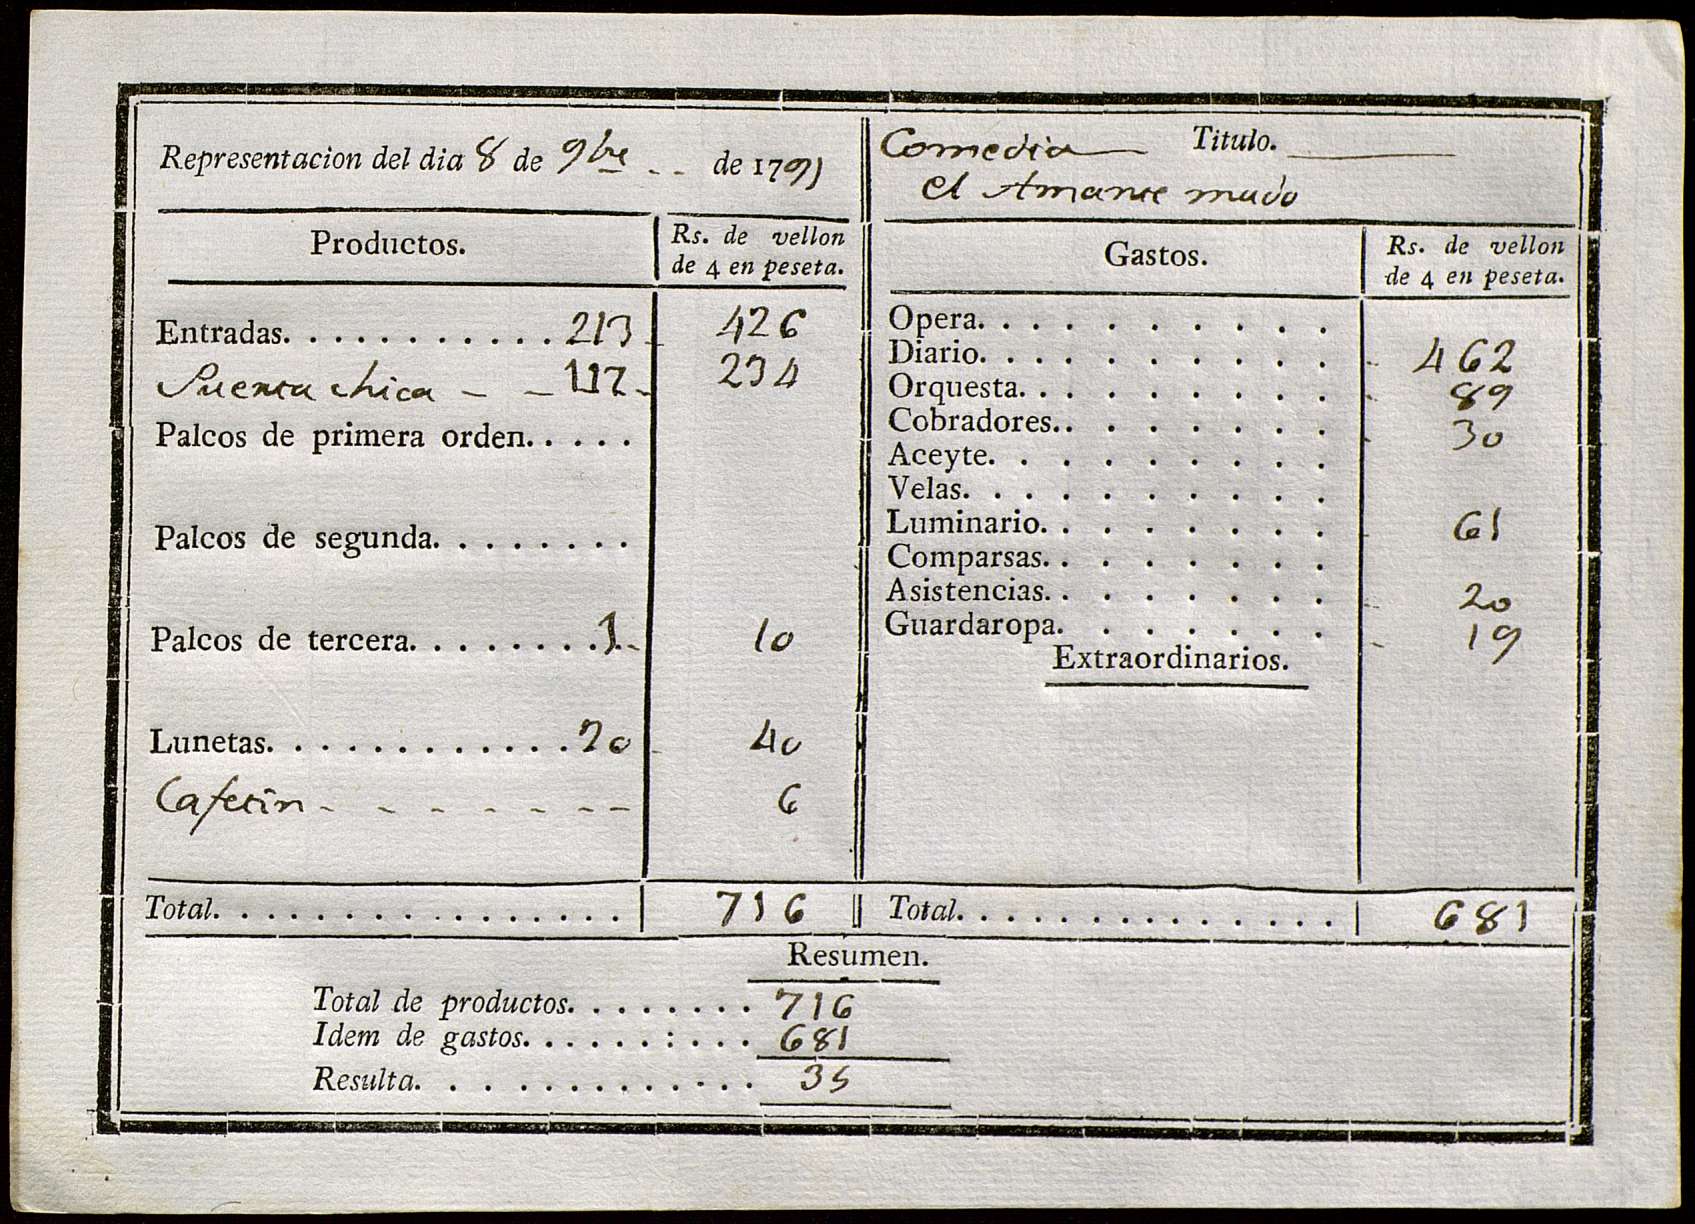 Representacion del dia 8 de 9bre - - de 1791
Productos.
Rs. de vellon
de 4 en peseta.
Entradas. . . . . . . . . . . . 213 - 426
Puerta chica - - 117 - 234
Palcos de primera orden. . . . .
Palcos de segunda. . . . . . . .
Palcos de tercera. . . . . . . . 1 - 10
Lunetas. . . . . . . . . . . . . 20 - 40
Cafetin - - - - - - - - 6
Total. . . . . . . . . . . . . . . . 716
Comedia Titulo.
el Amante mudo
Gastos.
Rs. de vellon
de 4 en peseta.
Opera. . . . . . . . . .
Diario. . . . . . . . . . - 462
Orquesta. . . . . . . . . - 89
Cobradores. . . . . . . . - 30
Aceyte. . . . . . . . . .
Velas. . . . . . . . . .
Luminario. . . . . . . . - 61
Comparsas. . . . . . . .
Asistencias. . . . . . . . - 20
Guardaropa. . . . . . . - 19
Extraordinarios.
Total. . . . . . . . . . . . . . 681
Resumen.
Total de productos. . . . . . . . 716
Idem de gastos. . . . . . : . . . 681
Resulta. . . . . . . . . . . . . 35